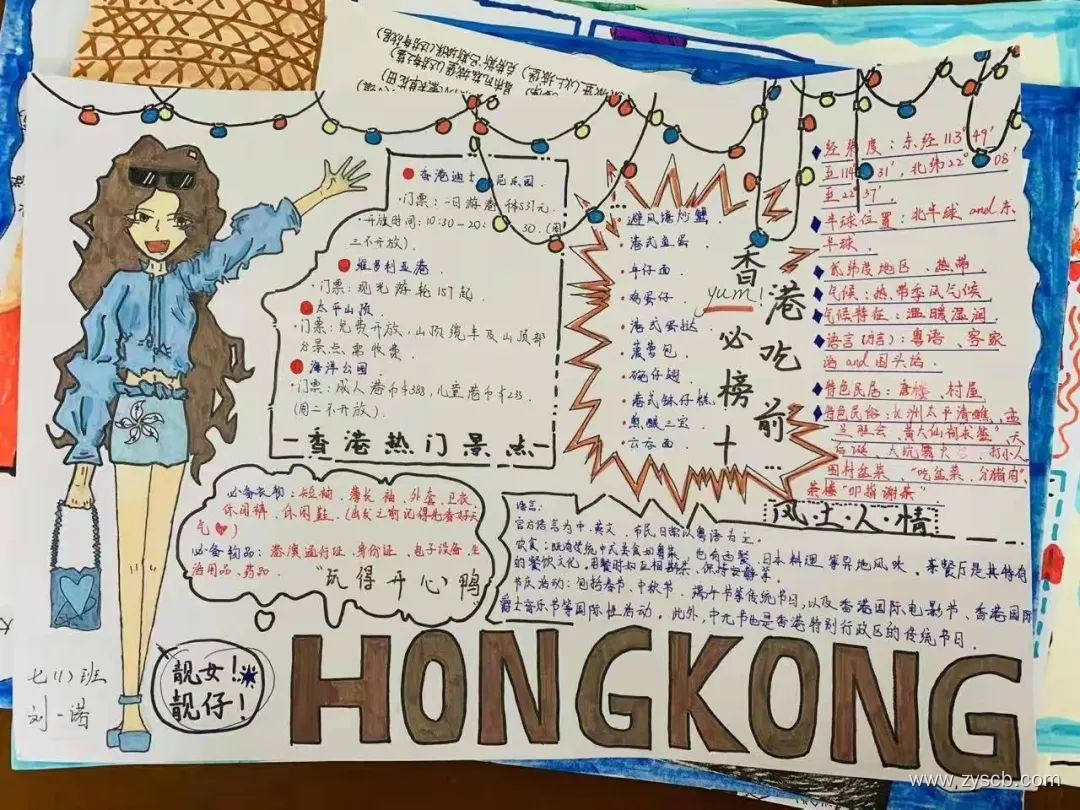 香港迪士尼乐园.
·门票:一日游港币531元.
·开放时间:10:30-20:30.(周
三不开放).
维多利亚港.
·门票:观光游轮157起.
太平山顶.
·门票:免费开放,山顶缆车及山顶部
分景点需收费.
海洋公园.
·门票:成人港币$388,儿童港币$233.
(周二不开放).
香港热门景点
·避风塘炒蟹.
·港式鱼蛋.
·车仔面.
·鸡蛋仔.
·港式蛋挞.
·菠萝包.
·碗仔翅.
·港式钵仔糕.
·云吞面.
yum!
香港必吃榜前十...
经纬度:东经113°49′
至114°31′,北纬22°08′
至22°37′
半球位置:北半球and东
半球.
低纬度地区、热带.
气候:热带季风气候
气候特征:温暖湿润.
语言(方言):粤语、客家
话and围头话.
特色民居:唐楼、村屋
特色民俗:长洲太平清醮、盂
兰胜会、黄大仙祠求签、天
后诞、大坑舞火龙、打小人、
围村盆菜、"吃盆菜,分猪肉"、
茶楼"叩指谢茶".
风·土·人·情
必备衣物:短袖、薄长袖、外套、卫衣、
休闲裤、休闲鞋.(出发之前记得先看好天
气)
必备物品:港澳通行证、身份证、电子设备、生
活用品、药品.
"玩得开心鸭
语言:
官方语言为中、英文,市民日常以粤语为主.
饮食:既有传统中式美食如粤菜,也有西餐、日本料理等异地风味.茶餐厅是其特有
的餐饮文化,用餐时应互相斟茶、保持安静等.
节庆活动:包括春节、中秋节、端午节等传统节日,以及香港国际电影节、香港国际
爵士音乐节等国际性活动.此外,中元节也是香港特别行政区的传统节日.
靓女!
靓仔!
七(1)班
刘一诺
HONGKONG
www.zyscb.com